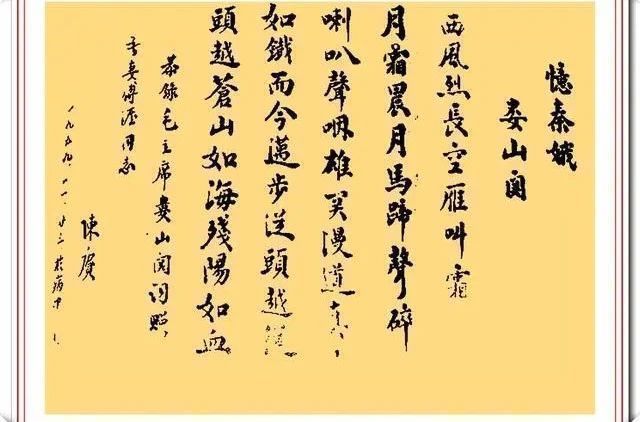 憶秦娥
婁山関
西風烈長空雁叫霜
月霜晨月馬蹄聲碎
喇叭聲咽雄関漫道真
如鐵而今邁步從頭越
頭越蒼山如海殘陽如血
恭錄毛主席婁山関詞贈
吾妻傅涯同志
陳賡
一九五九、十一、廿三於病中